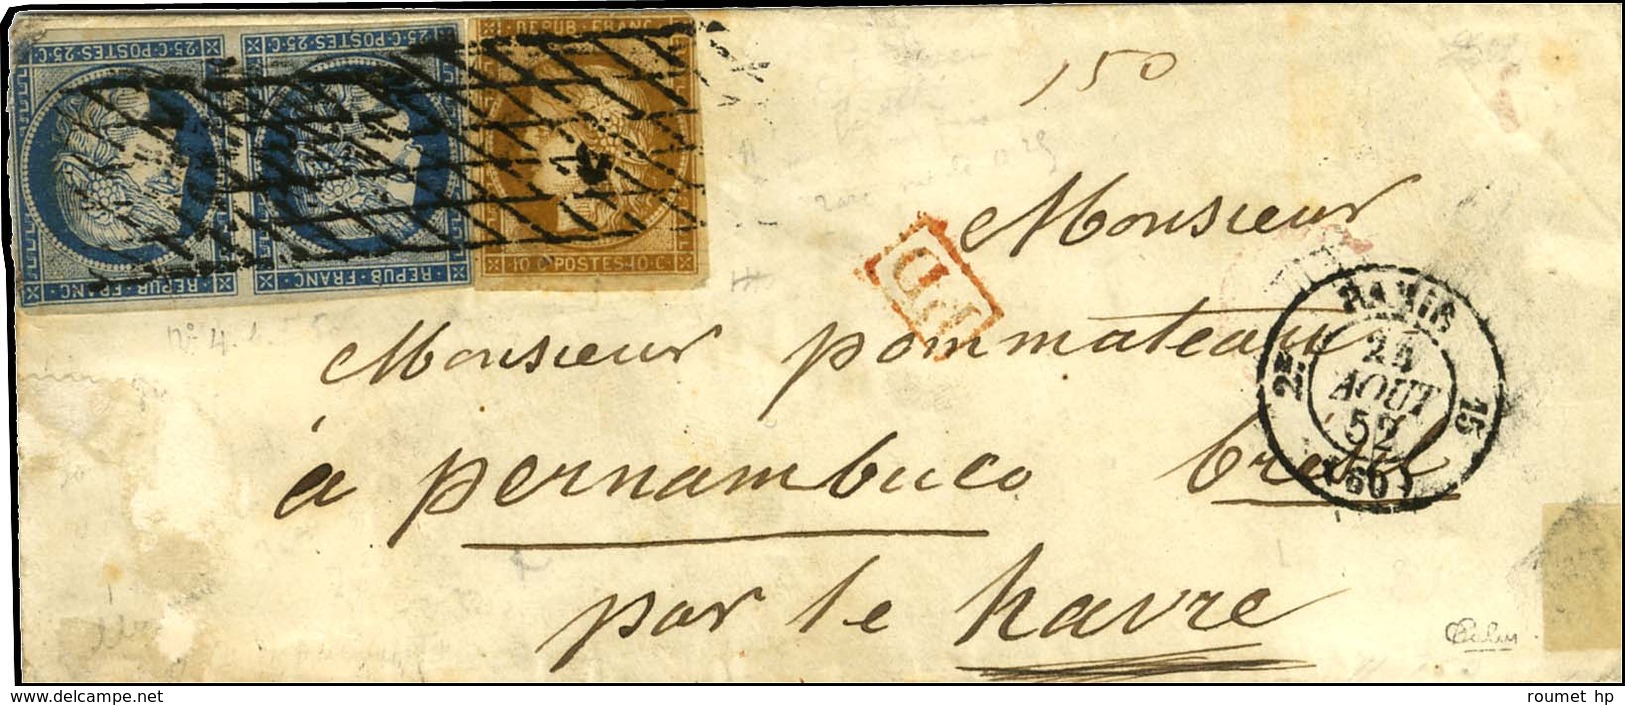 25·C·POSTES·25·C
25·C·POSTES·25·C
REPUB·FRANC
REPUB·FRANC
REPUB·FRANC
10·C·POSTES·10·C
150
Monsieur
PD
Monsieur pommateau
à pernambuco bresil
par le havre
PARIS
2E
24
AOUT
52
15
(60)
delcampe.net
roumet hp